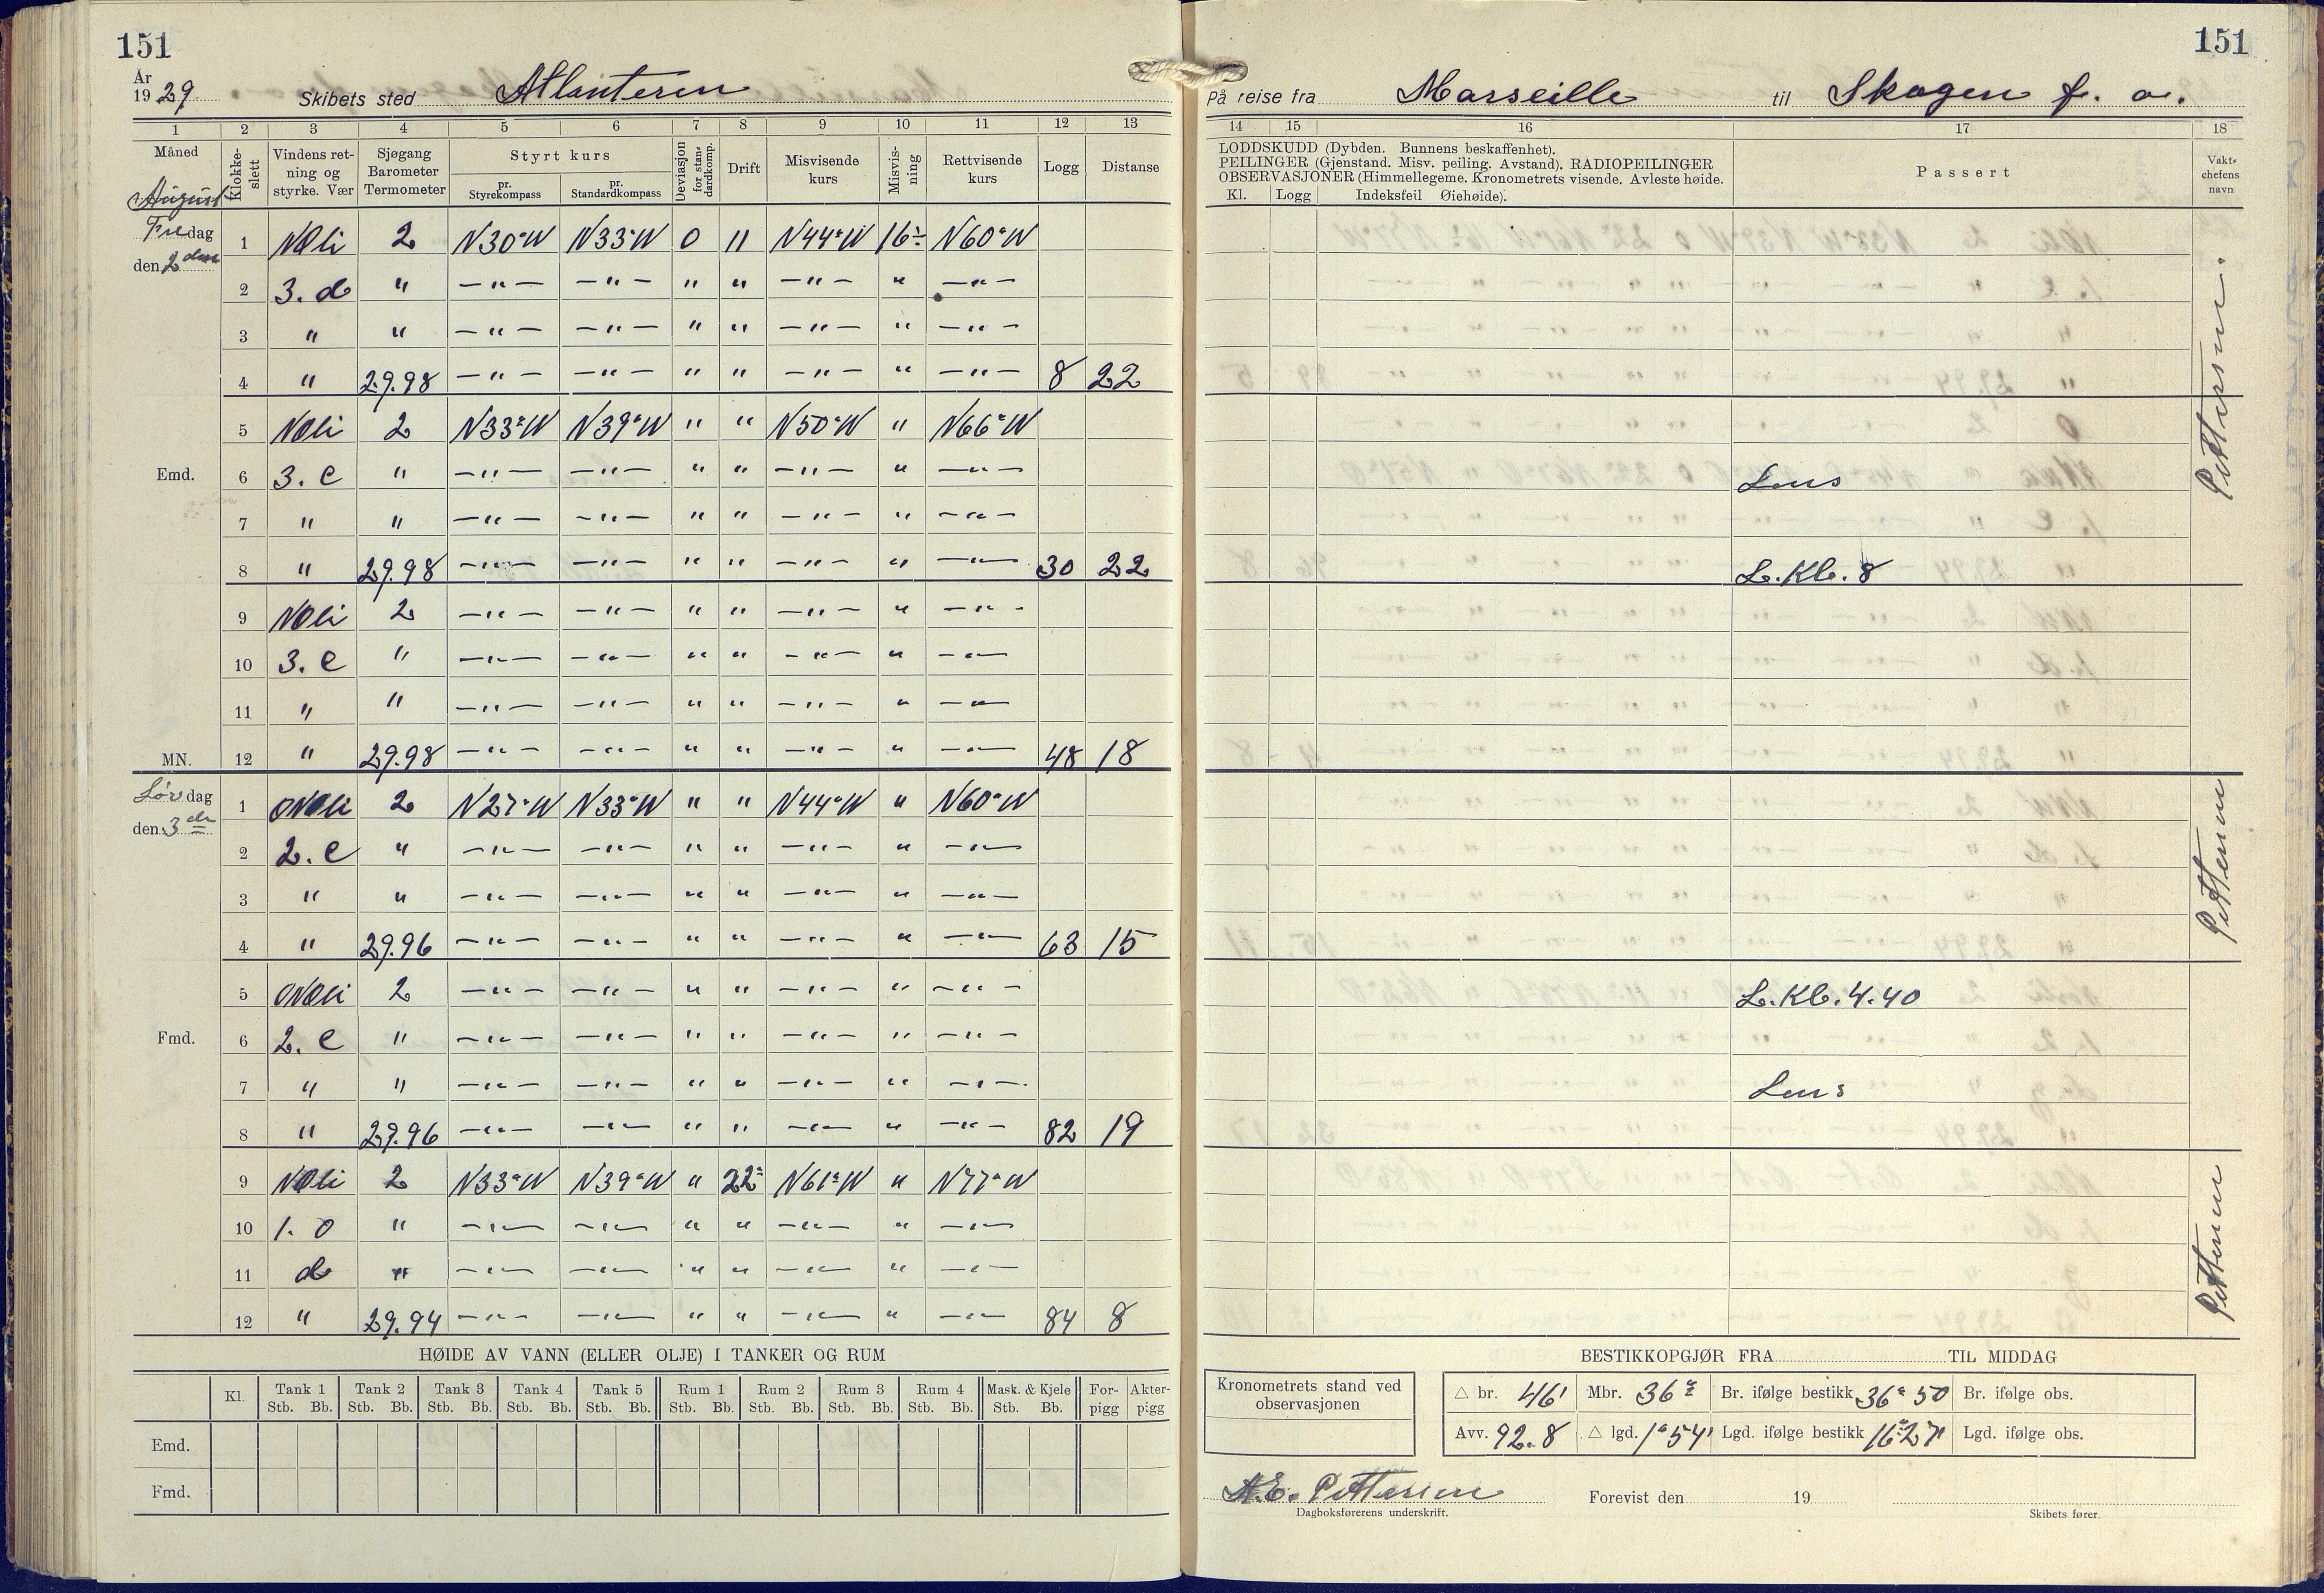 151
151
År
1929
Skibets sted Atlanteren
På reise fra Marseille til Skagen f. o.
1 2 3 4 5 6 7 8 9 10 11 12 13
14 15 16 17 18
Måned
August
Klokkeslett
Vindens retning og styrke. Vær
Sjøgang Barometer Termometer
Styrt kurs
pr. Styrekompass
pr. Standardkompass
Deviasjon for standardkomp.
Drift
Misvisende kurs
Misvisning
Rettvisende kurs
Logg
Distanse
LODDSKUDD (Dybden. Bunnens beskaffenhet).
PEILINGER (Gjenstand. Misv. peiling. Avstand). RADIOPEILINGER
OBSERVASJONER (Himmellegeme. Kronometrets visende. Avleste høide.
Kl. Logg Indeksfeil Øiehøide).
Passert
Vaktchefens navn
Fredag
den 2den
1 NOli 2 N30°W N33°W 0 11 N44°W 16° N60°W
2 3. d " —"— —"— " " —"— " —"—
3 " " —"— —"— " " —"— " —"—
4 " 29.98 —"— —"— " " —"— " —"— 8 22
5 NOli 2 N33°W N39°W " " N50°W " N66°W
Emd. 6 3. c " —"— —"— " " —"— " —"— Lens
7 " " —"— —"— " " —"— " —"—
8 " 29.98 —"— —"— " " —"— " —"— 30 22 L. Kl. 8
Pettersen.
9 NOli 2 —"— —"— " " —"— " —"—
10 3. c " —"— —"— " " —"— " —"—
11 " " —"— —"— " " —"— " —"—
MN. 12 " 29.98 —"— —"— " " —"— " —"— 48 18
Lørdag
den 3de
1 ONOli 2 N27°W N33°W " " N44°W " N60°W
2 2. c " —"— —"— " " —"— " —"—
3 " " —"— —"— " " —"— " —"—
4 " 29.96 —"— —"— " " —"— " —"— 63 15
Pettersen
5 ONOli 2 —"— —"— " " —"— " —"— L. Kl. 4.40
Fmd. 6 2. c " —"— —"— " " —"— " —"—
7 " " —"— —"— " " —"— " —"— Lens
8 " 29.96 —"— —"— " " —"— " —"— 82 19
9 NOli 2 N33°W N39°W " 22° N61°W " N77°W
10 1. 0 " —"— —"— " " —"— " —"—
11 d " —"— —"— " " —"— " —"—
12 " 29.94 —"— —"— " " —"— " —"— 84 8
Pettersen
HØIDE AV VANN (ELLER OLJE) I TANKER OG RUM
Kl. Tank 1 Tank 2 Tank 3 Tank 4 Tank 5 Rum 1 Rum 2 Rum 3 Rum 4 Mask. & Kjele Forpigg Akterpigg
Stb. Bb. Stb. Bb. Stb. Bb. Stb. Bb. Stb. Bb. Stb. Bb. Stb. Bb. Stb. Bb. Stb. Bb. Stb. Bb.
Emd.
Fmd.
BESTIKKOPGJØR FRA TIL MIDDAG
Kronometrets stand ved observasjonen
△ br. 46' Mbr. 36° Br. ifølge bestikk 36° 50 Br. ifølge obs.
Avv. 92.8 △ lgd. 1°54' Lgd. ifølge bestikk 16°27' Lgd. ifølge obs.
A.E. Pettersen Forevist den 19
Dagboksførerens underskrift. Skibets fører.